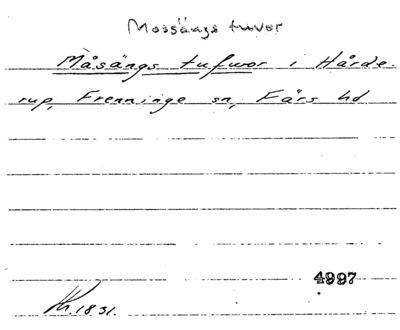 Mossängs tuvor
Måsängs tufwor i Hårde-
rup, Frenninge sn, Färs hd
4997
Kh. 1831.